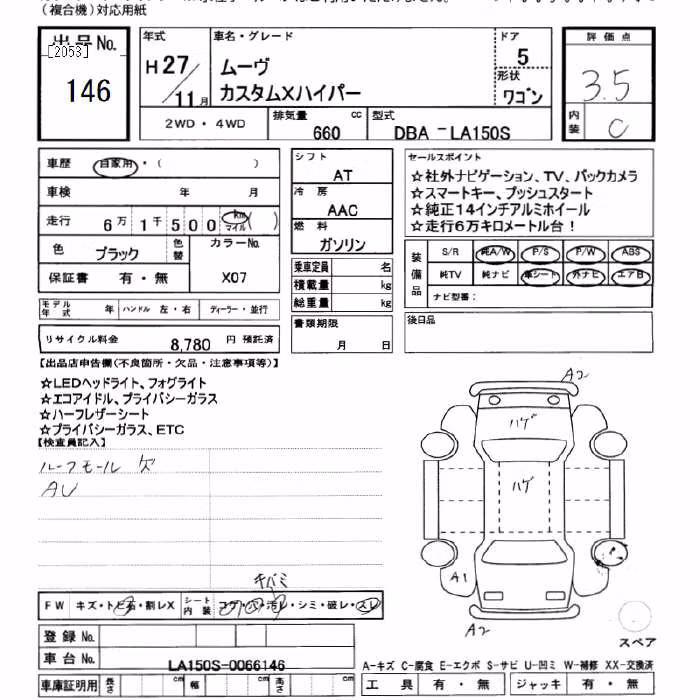 （複合機）対応用紙
出品No. [2053] 146
年式 H27/11月
車名・グレード ムーヴ カスタムXハイパー
ドア 5
形状 ワゴン
評価点 3.5
内装 C
2WD・4WD
排気量 660 cc
型式 DBA-LA150S
車歴 自家用・（ ）
車検 年 月
走行 6万1千500 km マイル（ ）
色 ブラック 色替 カラーNo. X07
保証書 有・無
モデル年式 年 ハンドル 左・右 ディーラー・並行
リサイクル料金 8,780 円 預託済
シフト AT
冷房 AAC
燃料 ガソリン
乗車定員 名
積載量 kg
総重量 kg
書類期限 月 日
セールスポイント
☆社外ナビゲーション、TV、バックカメラ
☆スマートキー、プッシュスタート
☆純正14インチアルミホイール
☆走行6万キロメートル台！
装備品 S/R 純A/W P/S P/W ABS
純TV 純ナビ 革シート 外ナビ エアB
ナビ型番：
後日品
【出品店申告欄（不良箇所・欠品・注意事項等）】
☆LEDヘッドライト、フォグライト
☆エコアイドル、プライバシーガラス
☆ハーフレザーシート
☆プライバシーガラス、ETC
【検査員記入】
ルーフモール ズ
AU
A2
ハゲ
ハゲ
A1
A2
スペア
キバミ
FW キズ・トビ石・割レX シート内装 コゲ・穴・汚レ・シミ・破レ・スレ
登録No.
車台No. LA150S-0066146
車庫証明用 長さ cm 幅 cm 高さ cm
A-キズ C-腐食 E-エクボ S-サビ U-凹ミ W-補修 XX-交換済
工具 有・無 ジャッキ 有・無